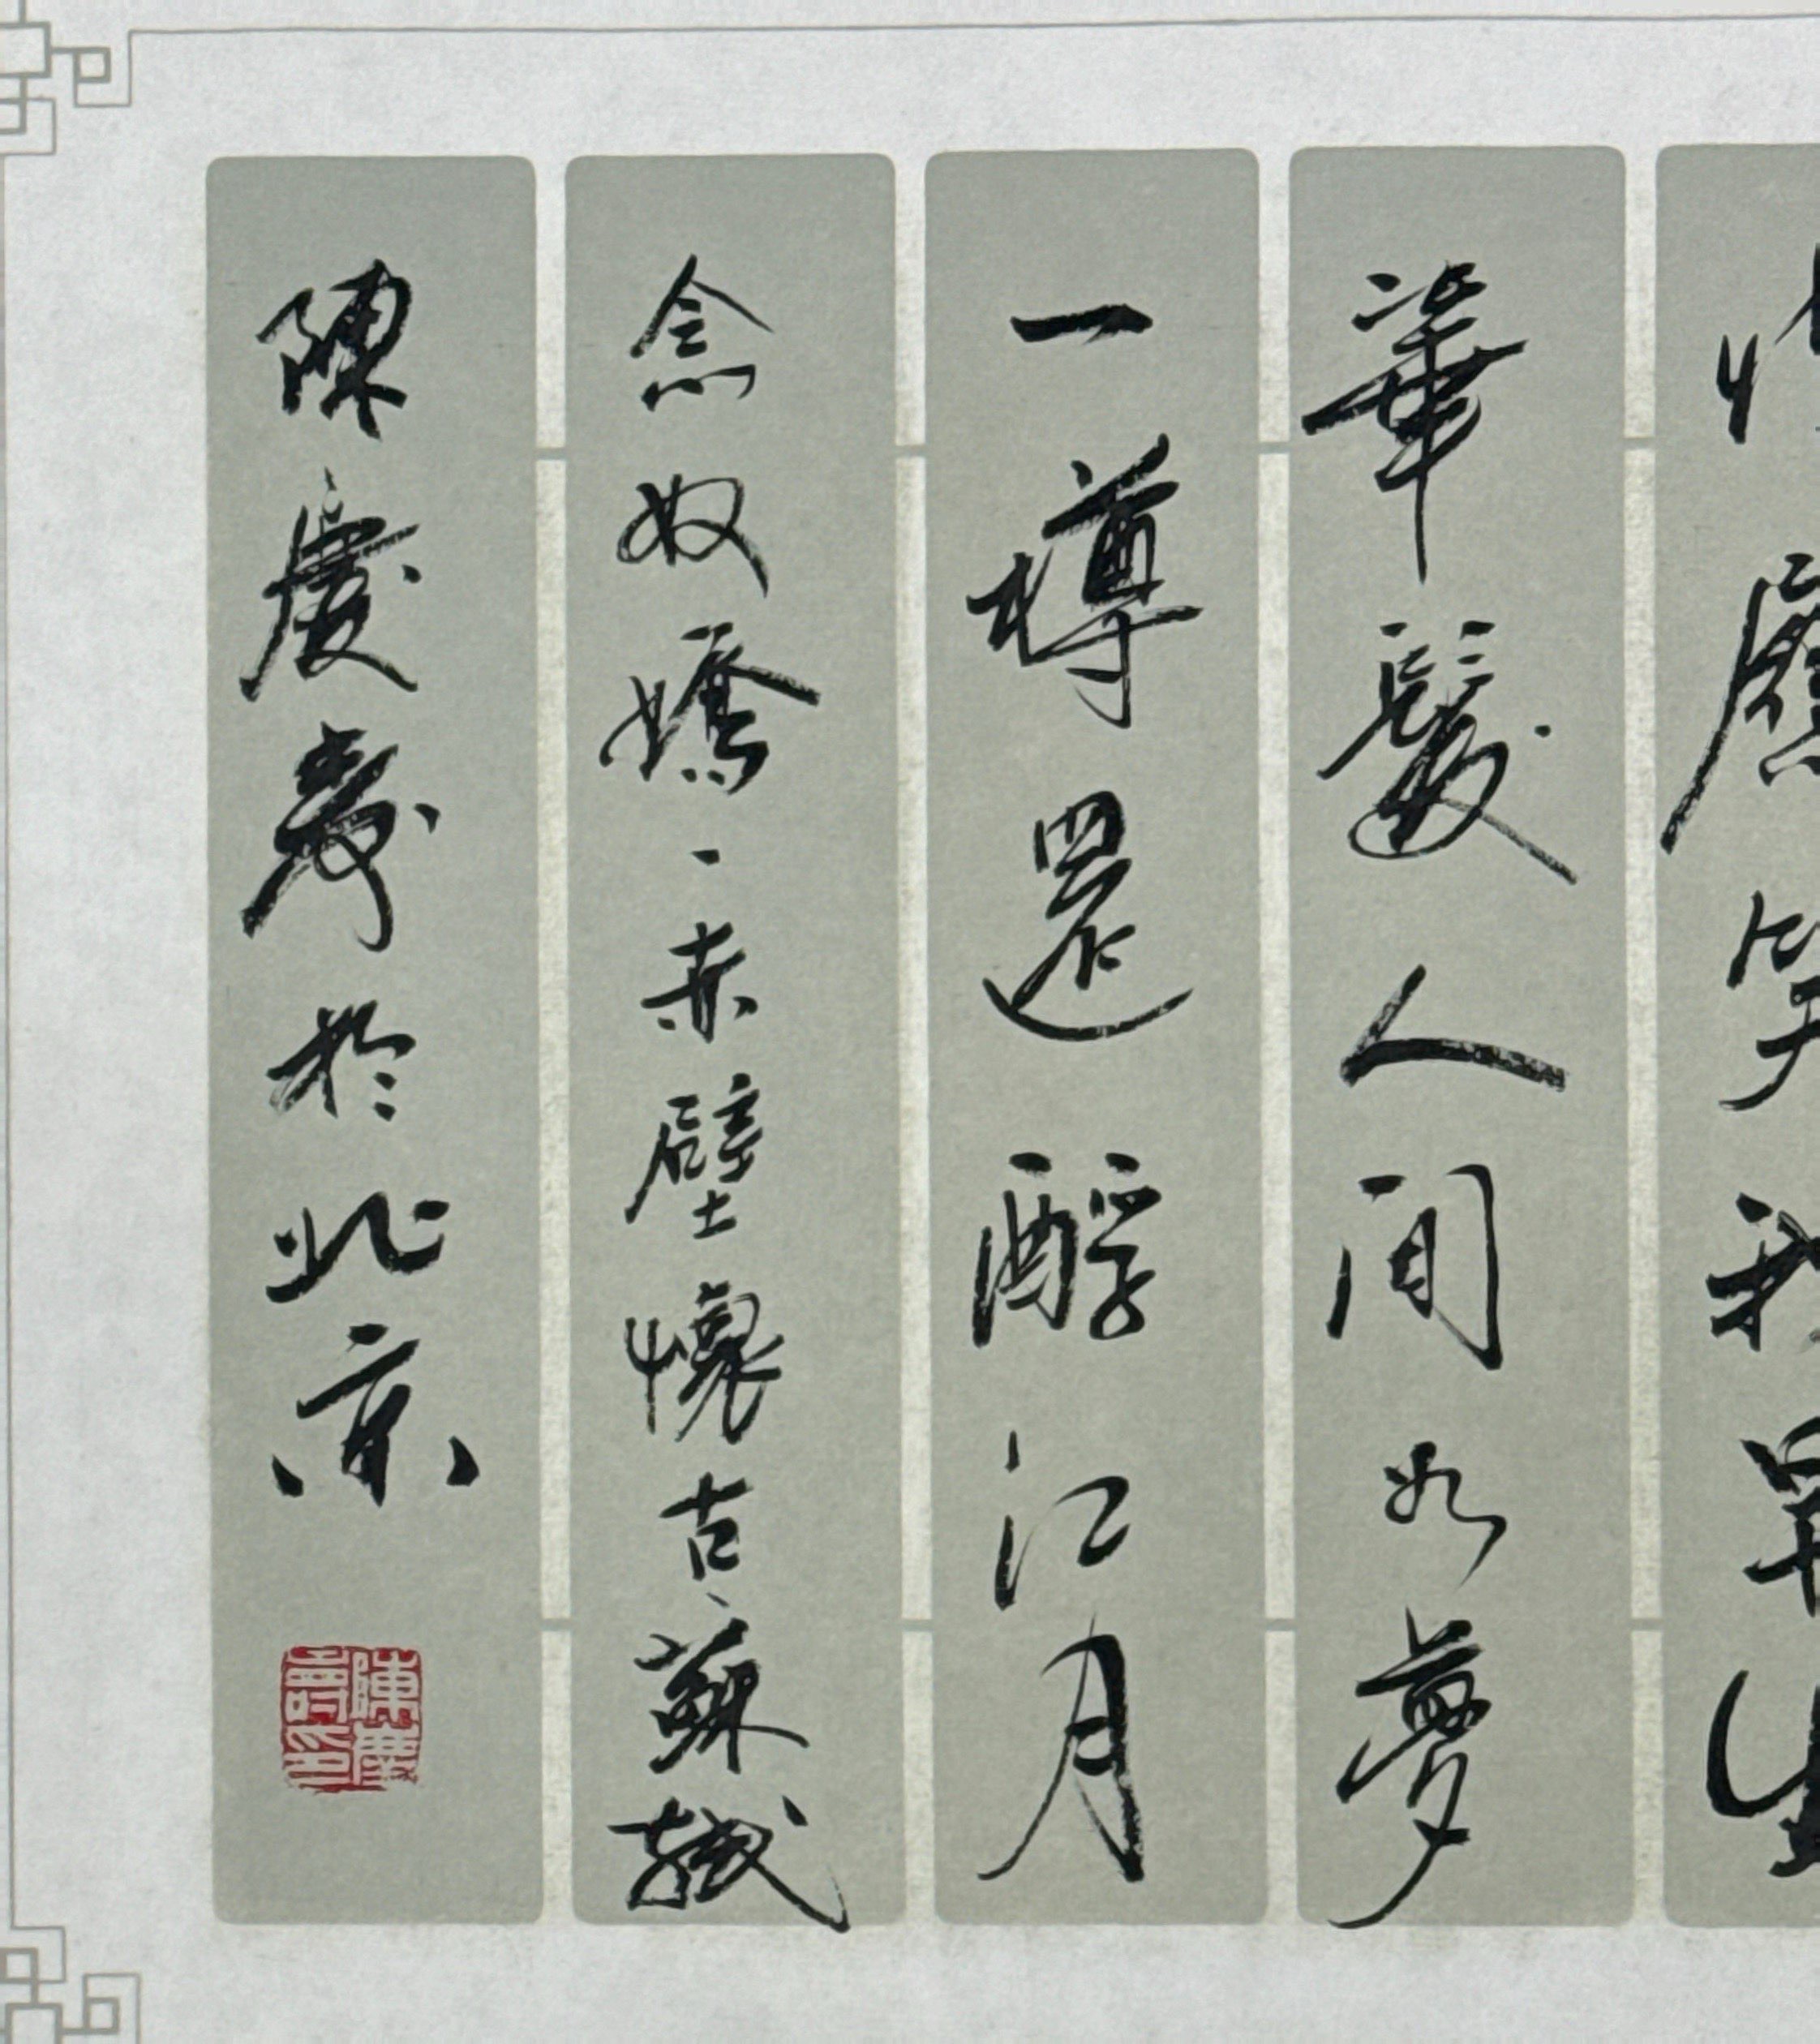 應笑我早生
華髮人間如夢
一樽還酹江月
念奴嬌·赤壁懷古蘇軾
陳慶壽於北京
陳慶
壽印